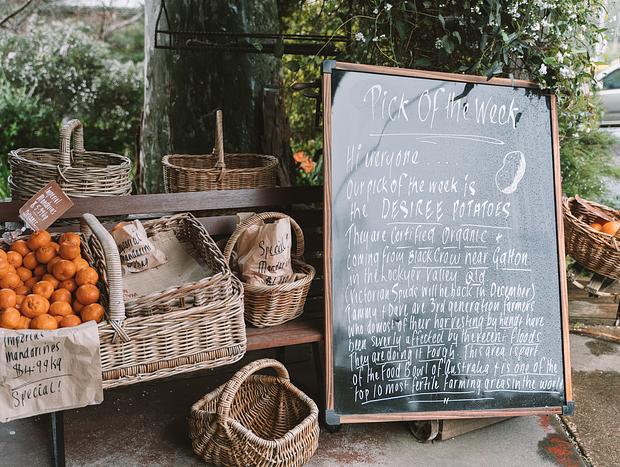 Pick Of the Week
Hi everyone ....
Our pick of the week is
the DESIREE POTATOES
They are Certified Organic *
coming from Black Crow near Gatton
in the Lockyer Valley Qld
(Victorian Spuds will be back in December)
Tammy + Dave are 3rd generation farmers
who do most of their harvesting by hand + have
been severly affected by the recent floods
They are doing it tough. This area is part
of the Food Bowl of Australia + is one of the
top 10 most fertile farming areas in the world
Imperial
mandarines
$4.99kg
Special!
Special